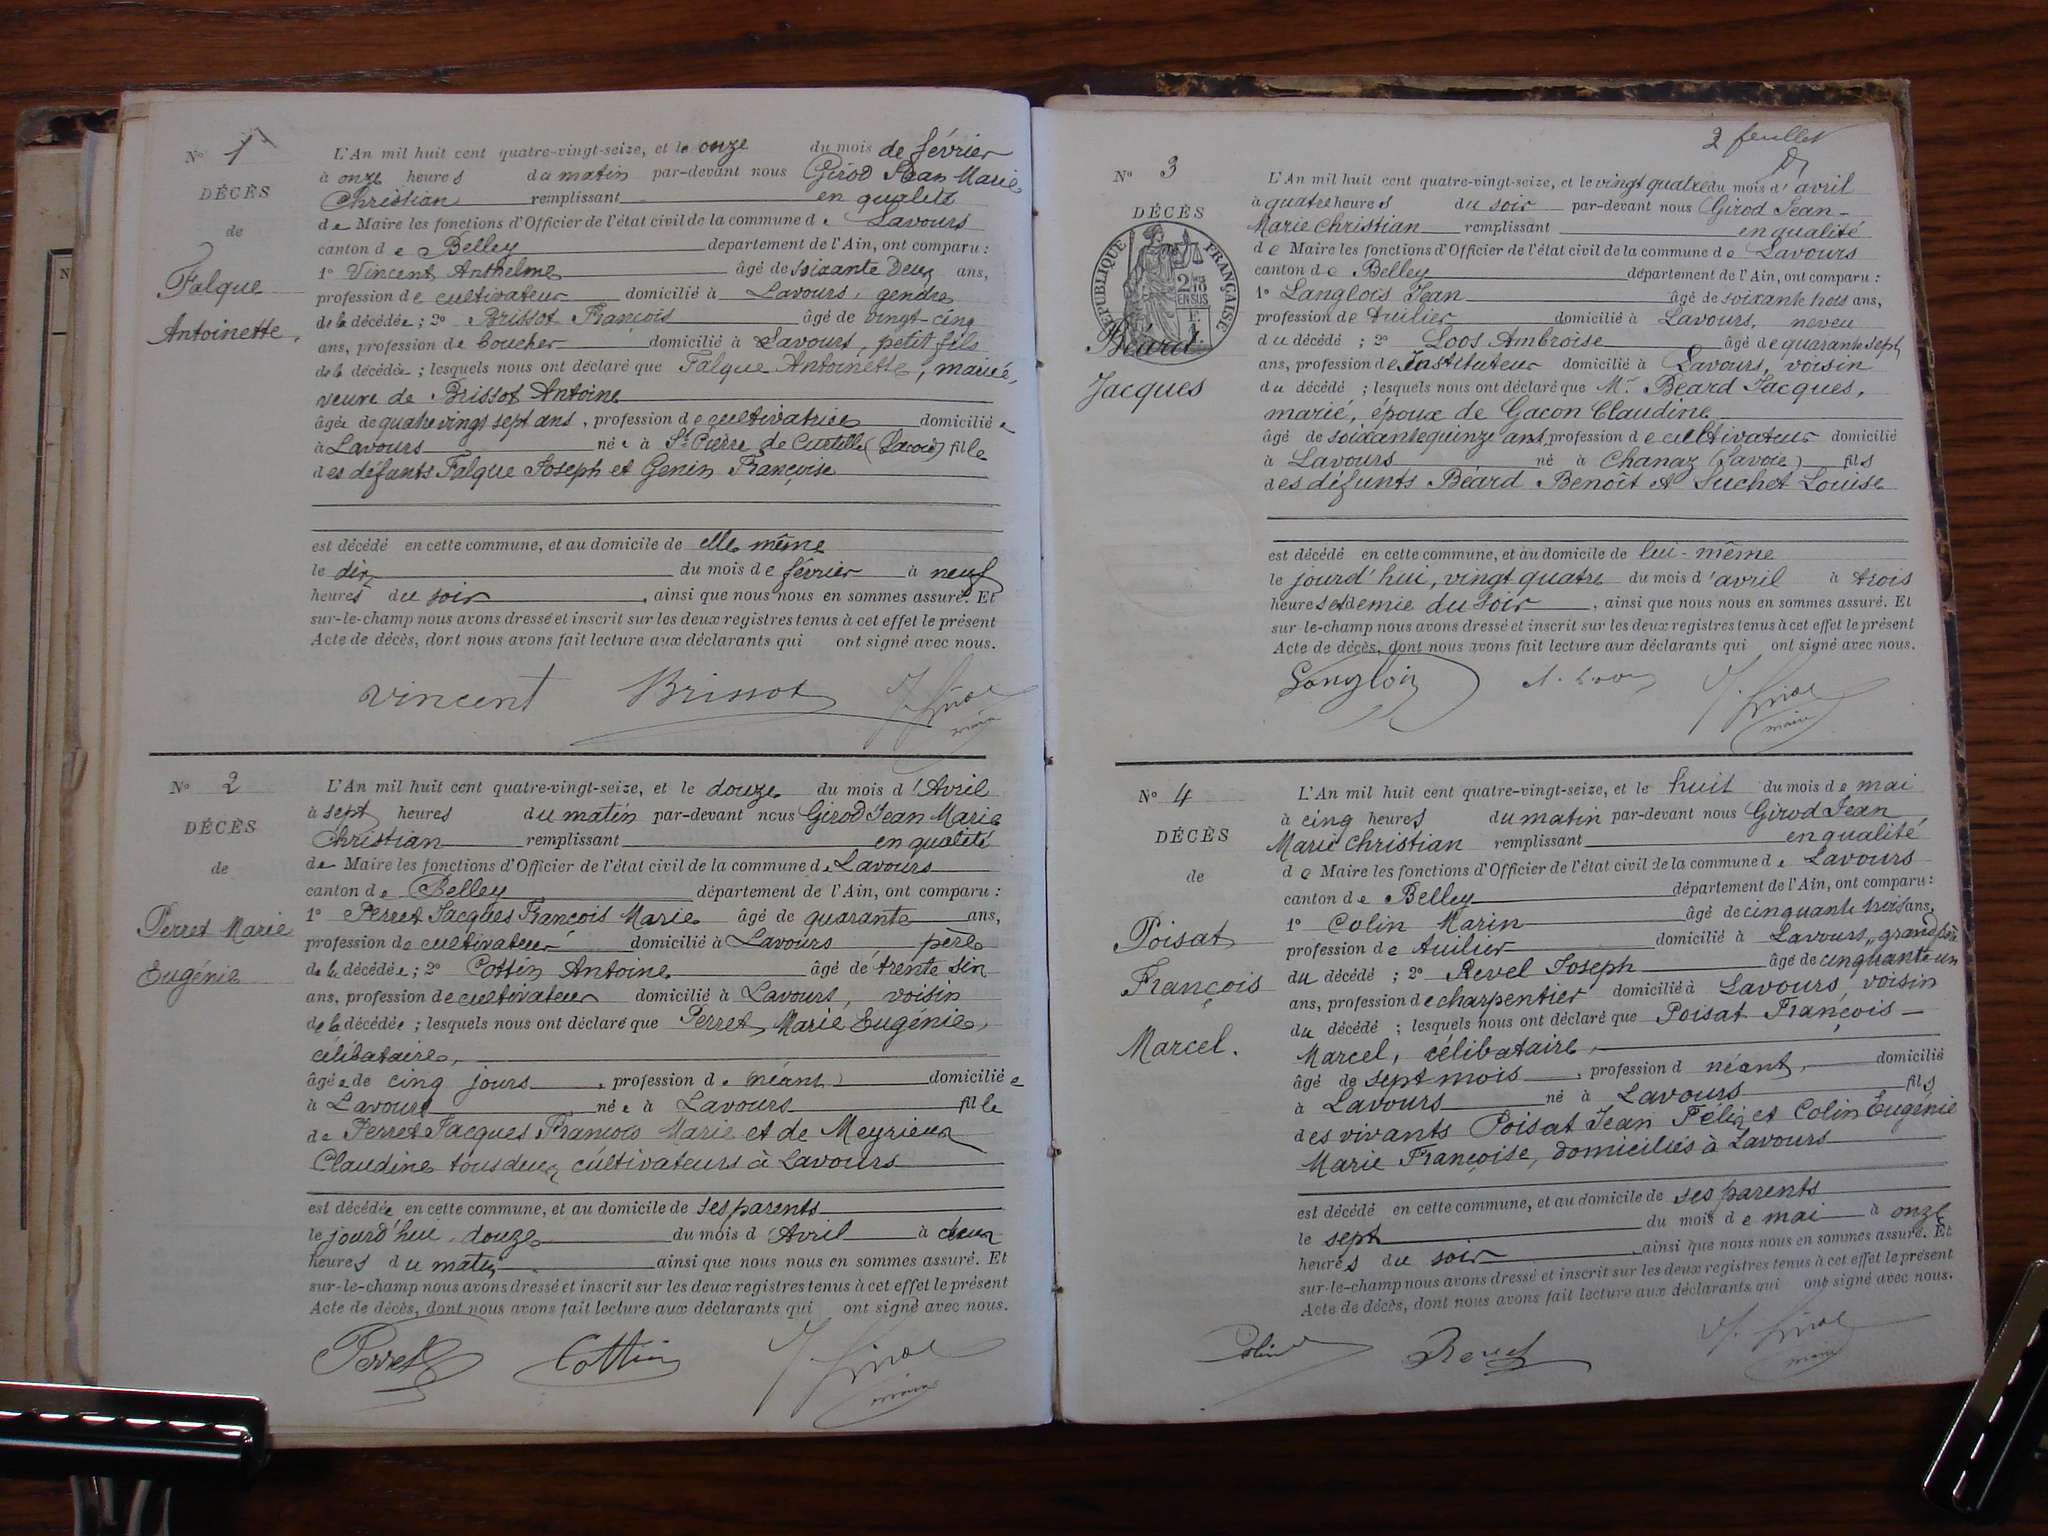 N° 1
DÉCÈS
de
Falque
Antoinette.
L'An mil huit cent quatre-vingt-seize, et le onze du mois de février
à onze heures du matin par-devant nous Girod Jean Marie
Christian remplissant en qualité
de Maire les fonctions d'Officier de l'état civil de la commune de Lavours
canton de Belley département de l'Ain, ont comparu :
1° Vincent Anthelme âgé de soixante deux ans,
profession de cultivateur domicilié à Lavours, gendre
de la décédée ; 2° Brissot François âgé de vingt-cinq
ans, profession de boucher domicilié à Lavours, petit fils
de la décédée ; lesquels nous ont déclaré que Falque Antoinette, mariée,
veuve de Brissot Antoine
âgée de quatre vingt sept ans, profession de cultivatrice domiciliée
à Lavours née à St Pierre de Curtille (Savoie) fille
des défunts Falque Joseph et Genin Françoise
est décédé en cette commune, et au domicile de elle même
le dix du mois de février à neuf
heures du soir, ainsi que nous nous en sommes assuré. Et
sur-le-champ nous avons dressé et inscrit sur les deux registres tenus à cet effet le présent
Acte de décès, dont nous avons fait lecture aux déclarants qui ont signé avec nous.
Vincent Brissot J. Girod
maire
N° 2
DÉCÈS
de
Perret Marie
Eugénie
L'An mil huit cent quatre-vingt-seize, et le douze du mois d'Avril
à sept heures du matin par-devant nous Girod Jean Marie
Christian remplissant en qualité
de Maire les fonctions d'Officier de l'état civil de la commune de Lavours
canton de Belley département de l'Ain, ont comparu :
1° Perret Jacques François Marie âgé de quarante ans,
profession de cultivateur domicilié à Lavours père
de la décédée ; 2° Cottin Antoine âgé de trente six
ans, profession de cultivateur domicilié à Lavours, voisin
de la décédée ; lesquels nous ont déclaré que Perret Marie Eugénie,
célibataire,
âgée de cinq jours, profession de (néant) domiciliée
à Lavours née à Lavours fille
de Perret Jacques François Marie et de Meyrieux
Claudine tous deux cultivateurs à Lavours
est décédée en cette commune, et au domicile de ses parents
le jourd'hui douze du mois d'Avril à deux
heures du matin ainsi que nous nous en sommes assuré. Et
sur-le-champ nous avons dressé et inscrit sur les deux registres tenus à cet effet le présent
Acte de décès, dont nous avons fait lecture aux déclarants qui ont signé avec nous.
Perret Cottin J. Girod
maire
2 feuillet
N° 3
DÉCÈS
RÉPUBLIQUE FRANÇAISE
2/10
EN SUS
Béard
Jacques
L'An mil huit cent quatre-vingt-seize, et le vingt quatre du mois d'avril
à quatre heures du soir par-devant nous Girod Jean-
Marie Christian remplissant en qualité
de Maire les fonctions d'Officier de l'état civil de la commune de Lavours
canton de Belley département de l'Ain, ont comparu :
1° Langlois Jean âgé de soixante trois ans,
profession de tuilier domicilié à Lavours, neveu
du décédé ; 2° Loos Ambroise âgé de quarante sept
ans, profession de Instituteur domicilié à Lavours, voisin
du décédé ; lesquels nous ont déclaré que Mr Béard Jacques,
marié, époux de Gacon Claudine
âgé de soixante quinze ans, profession de cultivateur domicilié
à Lavours né à Chanaz (Savoie) fils
des défunts Béard Benoît et Suchet Louise
est décédé en cette commune, et au domicile de lui-même
le jourd'hui, vingt quatre du mois d'avril à trois
heures et demie du soir, ainsi que nous nous en sommes assuré. Et
sur-le-champ nous avons dressé et inscrit sur les deux registres tenus à cet effet le présent
Acte de décès, dont nous avons fait lecture aux déclarants qui ont signé avec nous.
Langlois A. Loos J. Girod
maire
N° 4
DÉCÈS
de
Poisat
François
Marcel.
L'An mil huit cent quatre-vingt-seize, et le huit du mois de mai
à cinq heures du matin par-devant nous Girod Jean
Marie Christian remplissant en qualité
de Maire les fonctions d'Officier de l'état civil de la commune de Lavours
canton de Belley département de l'Ain, ont comparu :
1° Colin Marin âgé de cinquante trois ans,
profession de tuilier domicilié à Lavours, grand père
du décédé ; 2° Revel Joseph âgé de cinquante un
ans, profession de charpentier domicilié à Lavours voisin
du décédé ; lesquels nous ont déclaré que Poisat François-
Marcel, célibataire,
âgé de sept mois, profession d néant, domicilié
à Lavours né à Lavours fils
des vivants Poisat Jean Félix et Colin Eugénie
Marie Françoise, domiciliés à Lavours
est décédé en cette commune, et au domicile de ses parents
le sept du mois de mai à onze
heures du soir, ainsi que nous nous en sommes assuré. Et
sur-le-champ nous avons dressé et inscrit sur les deux registres tenus à cet effet le présent
Acte de décès, dont nous avons fait lecture aux déclarants qui ont signé avec nous.
Colin Revel J. Girod
maire